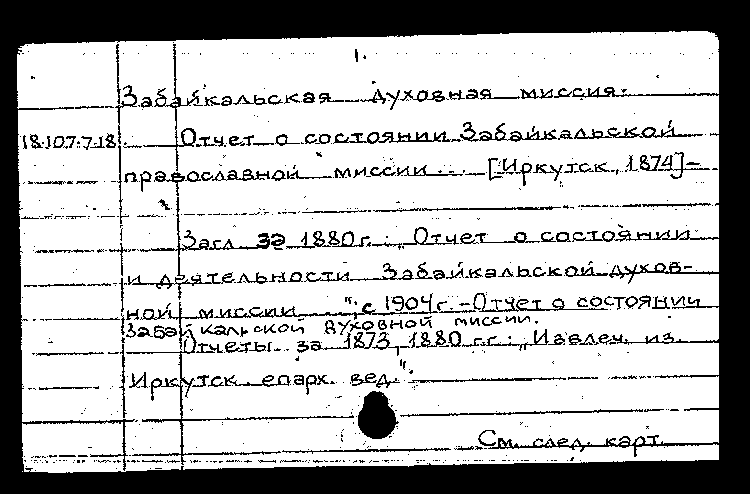 1.
Забайкальская духовная миссия.
18.107.7.18 Отчет о состоянии Забайкальской
православной миссии... [Иркутск, 1874]-
Загл. за 1880 г.: „Отчет о состоянии
и деятельности Забайкальской духов-
ной миссии ...", с 1904 г. - Отчет о состоянии
Забайкальской духовной миссии.
Отчеты за 1873, 1880 г.г.: „Извлеч. из.
Иркутск. епарх. вед."
См. след. карт.